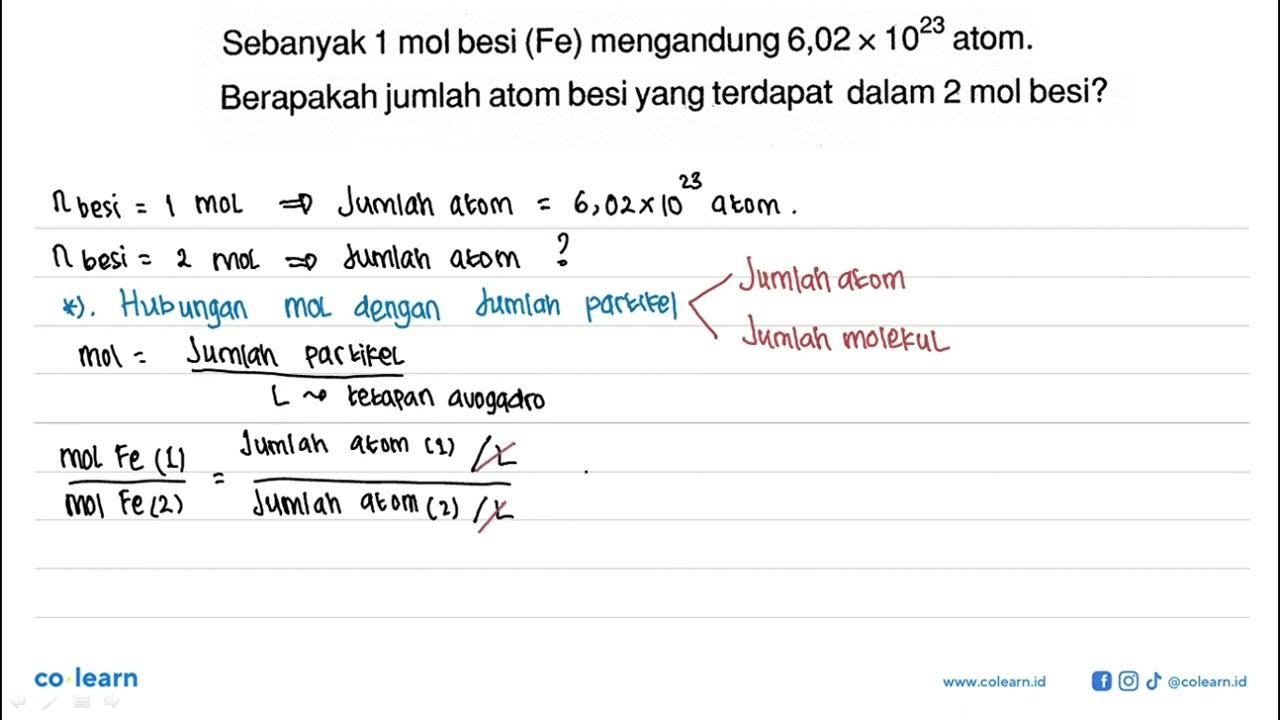 Sebanyak 1 mol besi (Fe) mengandung 6,02 × 10²³ atom.
Berapakah jumlah atom besi yang terdapat dalam 2 mol besi?
n besi = 1 mol ⇒ Jumlah atom = 6,02 × 10²³ atom.
n besi = 2 mol ⇒ Jumlah atom ?
*). Hubungan mol dengan Jumlah partikel
Jumlah atom
Jumlah molekul
mol = Jumlah partikel
L ~> tetapan avogadro
mol Fe (1) = Jumlah atom (1) / L
mol Fe (2) Jumlah atom (2) / L
co learn
www.colearn.id
@colearn.id